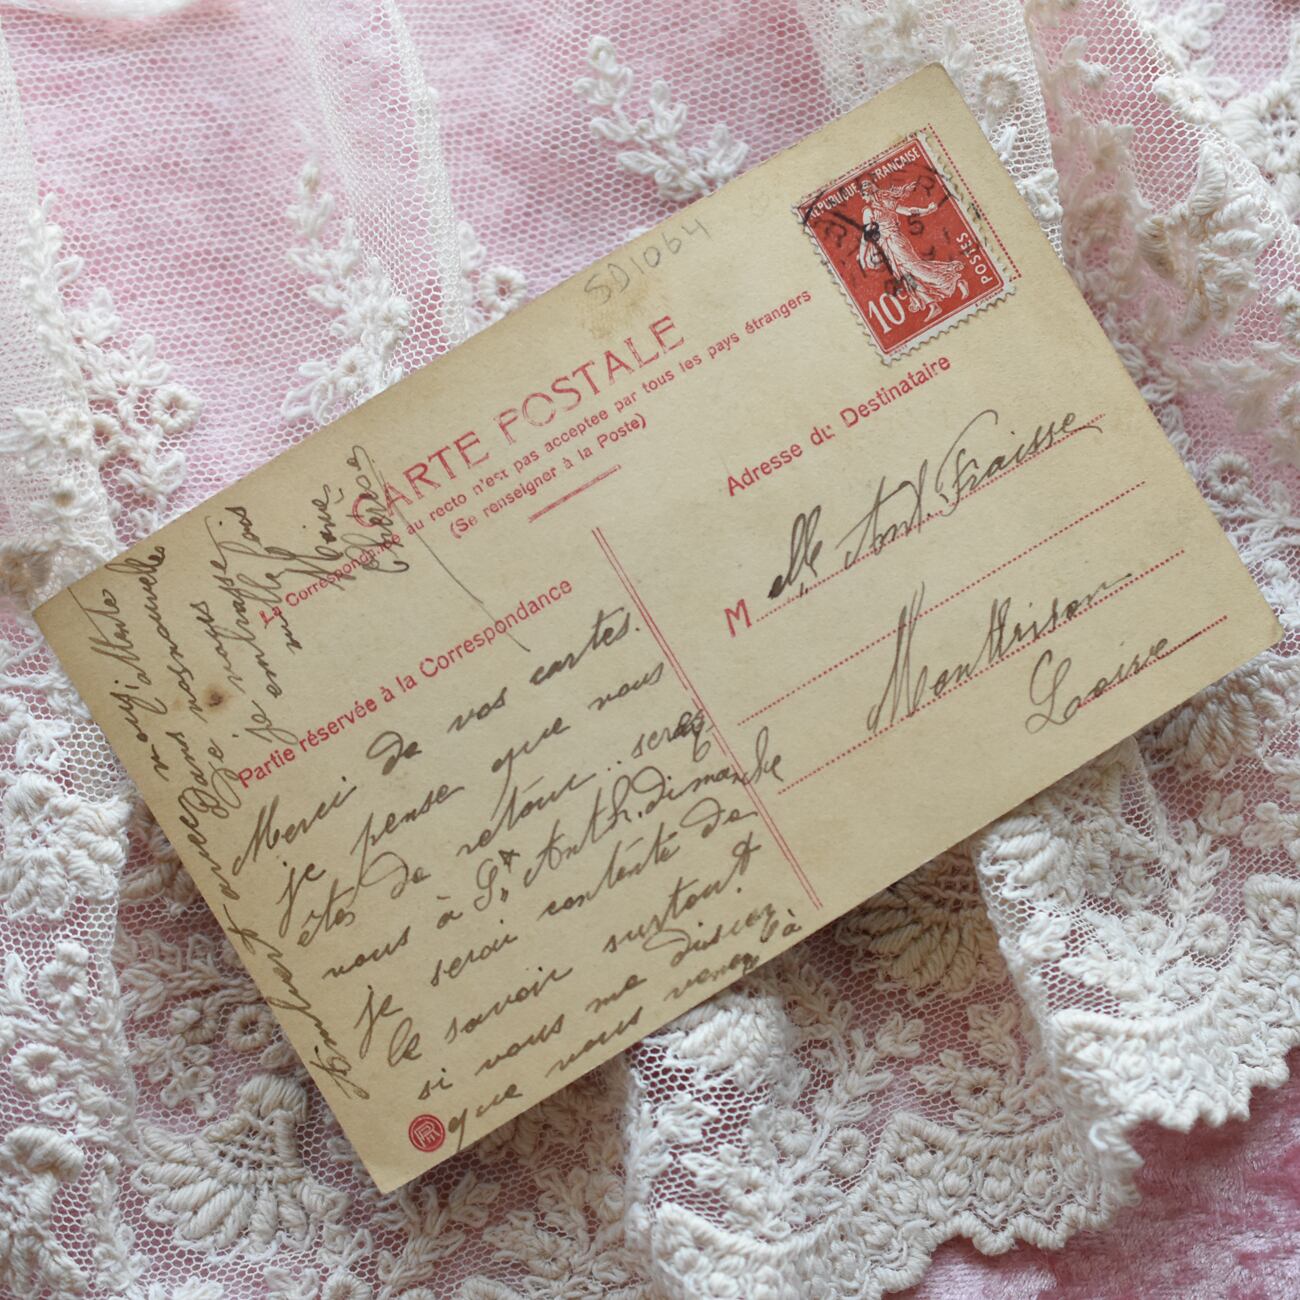 SD1064
REPUBLIQUE FRANÇAISE
POSTES
10c
CARTE POSTALE
La Correspondance au recto n'est pas acceptée par tous les pays étrangers
(Se renseigner à la Poste)
Partie réservée à la Correspondance
Adresse du Destinataire
M elle Ant. Fraisse
Montbrison
Loire
Merci de vos cartes.
je pense que vous
êtes de retour.. serez
vous à St Anth. dimanche
je serai contente de
le savoir surtout
si vous me disiez
que vous venez à
avec
Dans nos nouvelles
Je
Je embrasse
mille fois
Marie
Thérèse